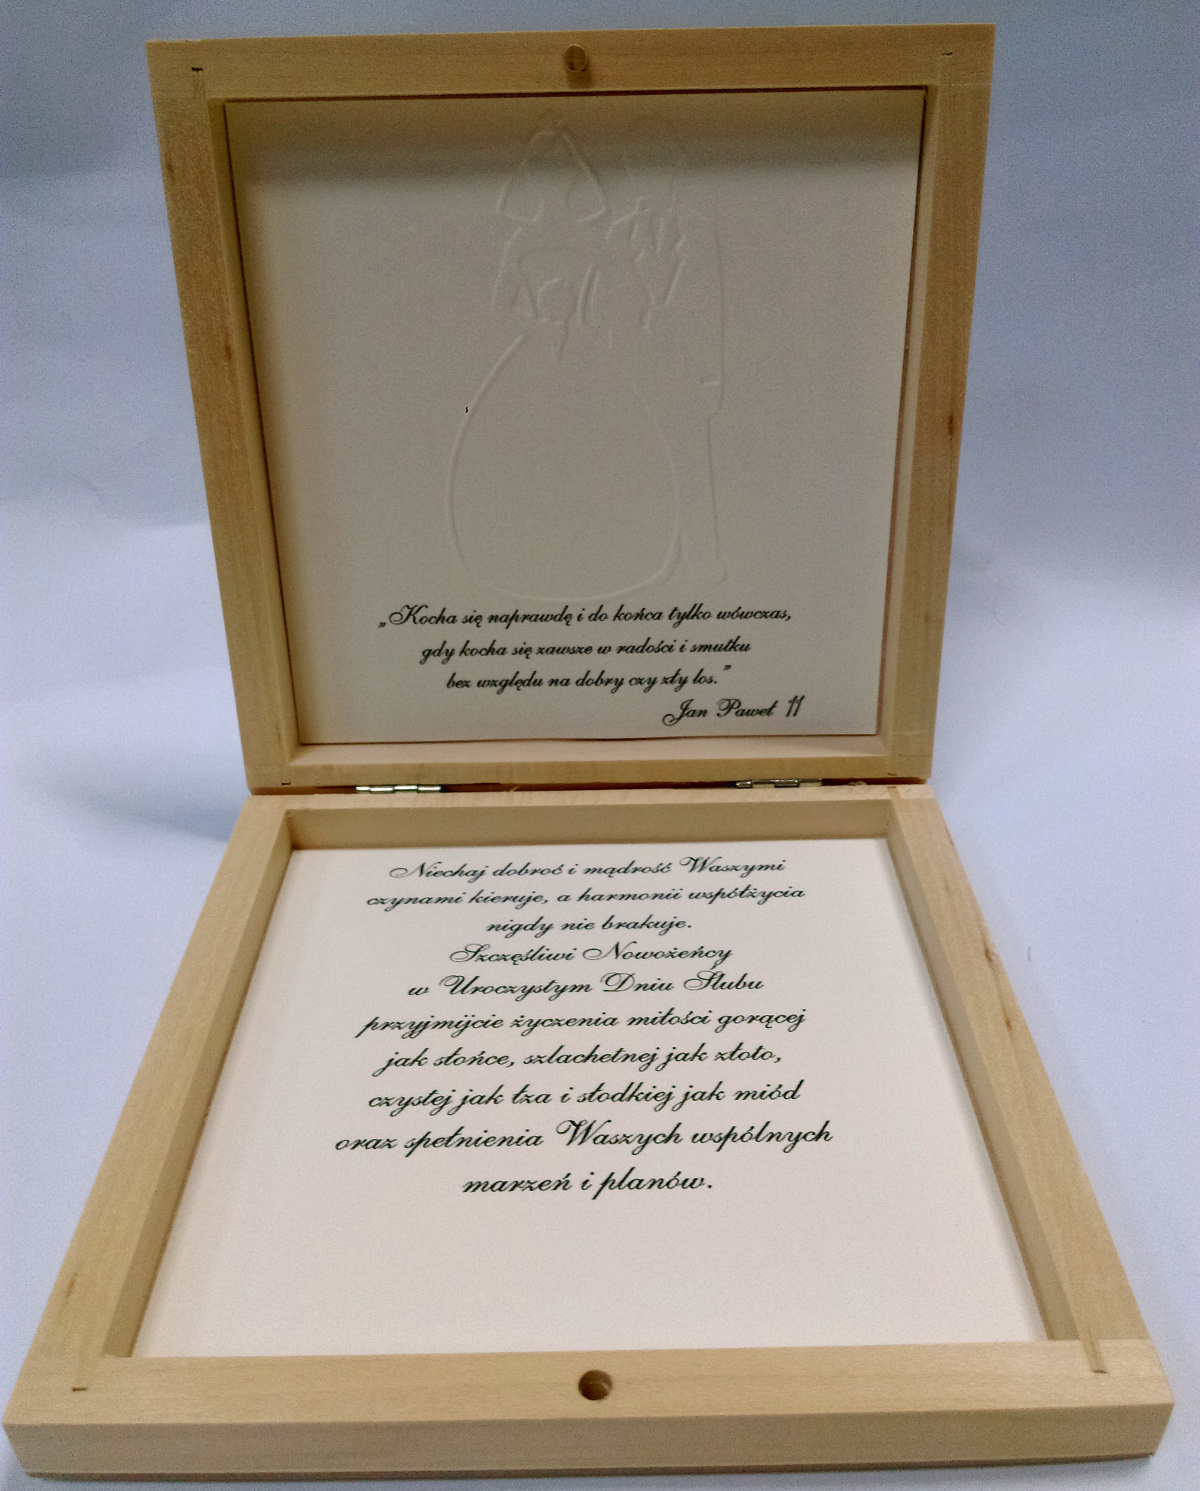 „Kocha się naprawdę i do końca tylko wówczas,
gdy kocha się zawsze w radości i smutku
bez względu na dobry czy zły los.”
Jan Paweł II
Niechaj dobroć i mądrość Waszymi
czynami kieruje, a harmonii współżycia
nigdy nie brakuje.
Szczęśliwi Nowożeńcy
w Uroczystym Dniu Ślubu
przyjmijcie życzenia miłości gorącej
jak słońce, szlachetnej jak złoto,
czystej jak łza i słodkiej jak miód
oraz spełnienia Waszych wspólnych
marzeń i planów.